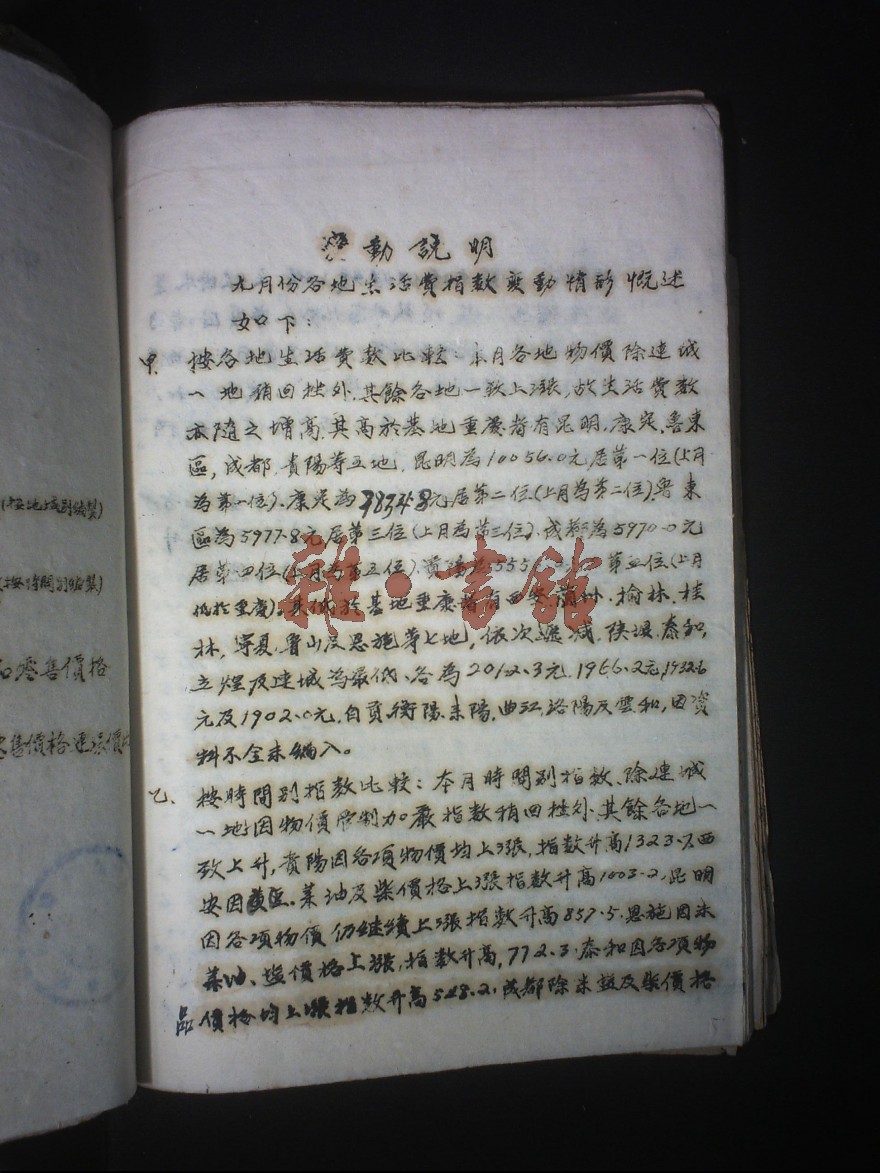 變動說明
九月份各地生活費指數變動情形慨述
如下：
甲、按各地生活費數比較：本月各地物價除連城
一地稍回挫外，其餘各地一致上漲，故生活費數
亦隨之增高，其高於基地重慶者有昆明，康定，魯東
區，成都，貴陽等五地，昆明為10056.0元居第一位(上月
為第一位)，康定為元居第二位(上月為第二位)，魯東
區為5977.8元居第三位(上月為第三位)，成都為5970.0元
居第四位(上月為第五位)，貴陽為555 第五位(上月
低於重慶)；其低於基地重慶者有西安，蘭州，榆林，桂
林，寧夏，魯山及恩施等七地，依次遞減，陝垻，泰和，
立煌及連城為最低，各為2012.3元，1966.2元，1932.6
元及1902.0元，自貢，衡陽，耒陽，曲江，洛陽及雲和，因資
料不全未編入。
乙、按時間別指數比較：本月時間別指數，除連城
一地因物價管制加嚴指數稍回挫外，其餘各地一
致上升，貴陽因各項物價均上漲，指數升高1323.7，西
安因菜油及柴價格上漲指數升高1003.2，昆明
因各項物價仍继續上漲指數升高857.5，恩施因米
菜油、塩價格上漲，指數升高，772.3，泰和因各項物
品價格均上漲指數升高528.2，成都除米塩及柴價格
(按地域別編製)
(按時間別編製)
和零售價格
零售價格連漲價
雜·書館